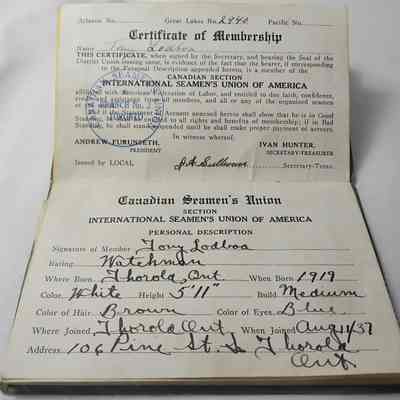 Atlantic No. Great Lakes No. 2940 Pacific No.
Certificate of Membership
Name Tony Lodboa
THIS CERTIFICATE, when signed by the Secretary, and bearing the Seal of the
District Union issuing same, is evidence of the fact that the bearer, if corresponding
to the Personal Description appended hereto, is a member of the
CANADIAN SECTION
INTERNATIONAL SEAMEN'S UNION OF AMERICA
affiliated with American Federation of Labor, and entitled to due faith, confidence,
credit and assistance from all members, and all or any of the organized seamen of
the world, if the Statement of Account annexed hereto shall show that he is in Good
Standing, he is entitled to all rights and benefits of membership; if in Bad
Standing, he shall stand suspended until he shall make proper payment of arrears.
In witness whereof:
ANDREW FURUSETH, IVAN HUNTER,
PRESIDENT SECRETARY-TREASURER
Issued by LOCAL J.A. Sullivan Secretary-Treas.
Canadian Seamen's Union
SECTION
INTERNATIONAL SEAMEN'S UNION OF AMERICA
PERSONAL DESCRIPTION
Signature of Member Tony Lodboa
Rating Watchman
Where Born Thorold, Ont When Born 1919
Color White Height 5'11" Build Medium
Color of Hair Brown Color of Eyes Blue
Where Joined Thorold Ont When Joined Aug 11/37
Address 106 Pine St. S Thorold
Ont